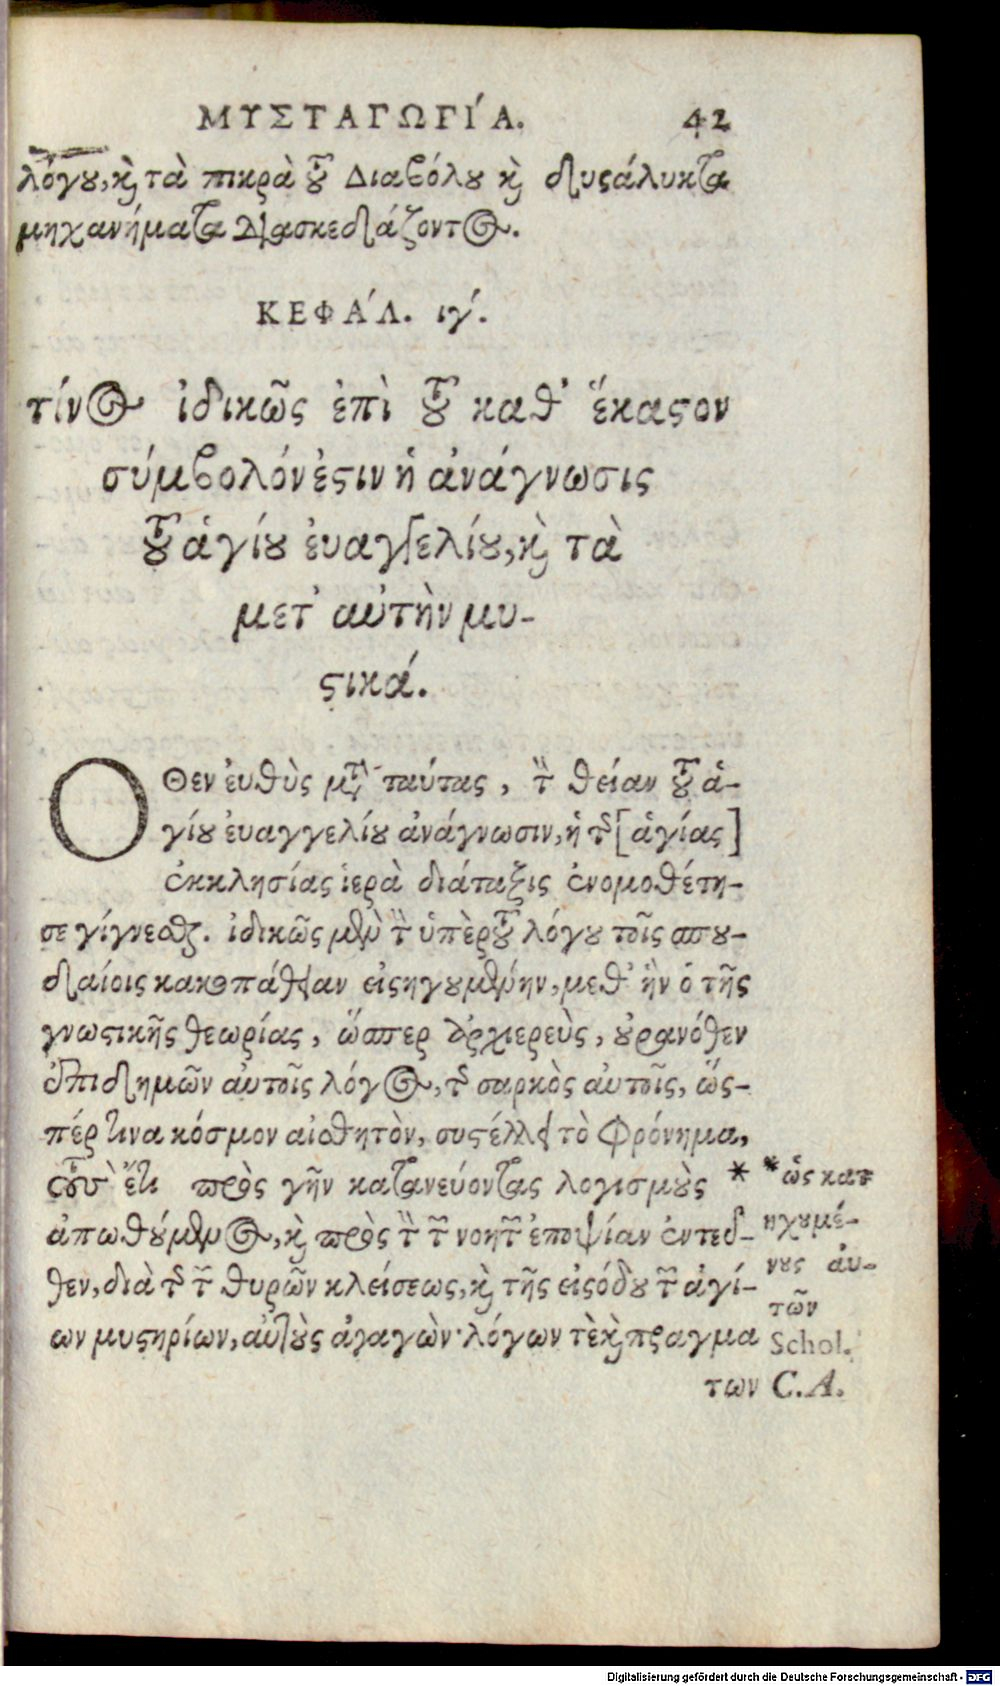 ΜΥΣΤΑΓΩΓΊΑ. 42
λόγου, καὶ τὰ πικρὰ τοῦ Διαβόλου καὶ δυσάλυκτα
μηχανήματα διασκεδάζοντος.
ΚΕΦΆΛ. ιγ΄.
τίνος ἰδικῶς ἐπὶ τοῦ καθ' ἕκαστον
σύμβολόν ἐστιν ἡ ἀνάγνωσις
τοῦ ἁγίου ἐυαγγελίου, καὶ τὰ
μετ' αὐτὴν μυ-
στικά.
Ὅθεν ἐυθὺς μετὰ ταύτας, τὴν θείαν τοῦ ἁ-
γίου ἐυαγγελίου ἀνάγνωσιν, ἡ τῆς [ἁγίας]
ἐκκλησίας ἱερὰ διάταξις ἐνομοθέτη-
σε γίγνεσθαι. ἰδικῶς μὲν τὴν ὑπὲρ τοῦ λόγου τοῖς σπου-
δαίοις κακοπάθειαν εἰσηγουμένην, μεθ' ἣν ὁ τῆς
γνωστικῆς θεωρίας, ὥσπερ ἀρχιερεὺς, οὐρανόθεν
ἐπιδημῶν αὐτοῖς λόγος, τῆς σαρκὸς αὐτοῖς, ὥς-
πέρ τινα κόσμον αἰσθητὸν, συστέλλει τὸ φρόνημα,
τοὺς ἔτι πρὸς γῆν κατανεύοντας λογισμοὺς *
ἀπωθούμενος, καὶ πρὸς τὴν τῶν νοητῶν ἐποψίαν ἐντεῦ-
θεν, διὰ τῆς τῶν θυρῶν κλείσεως, καὶ τῆς εἰσόδου τῶν ἁγί-
ων μυστηρίων, αὐτοὺς ἀγαγὼν· λόγων τὲ καὶ πραγμα
των
* ὡς κατ
ηχουμέ-
νους αυ-
τῶν
Schol.
C.A.
Digitalisierung gefördert durch die Deutsche Forschungsgemeinschaft - DFG